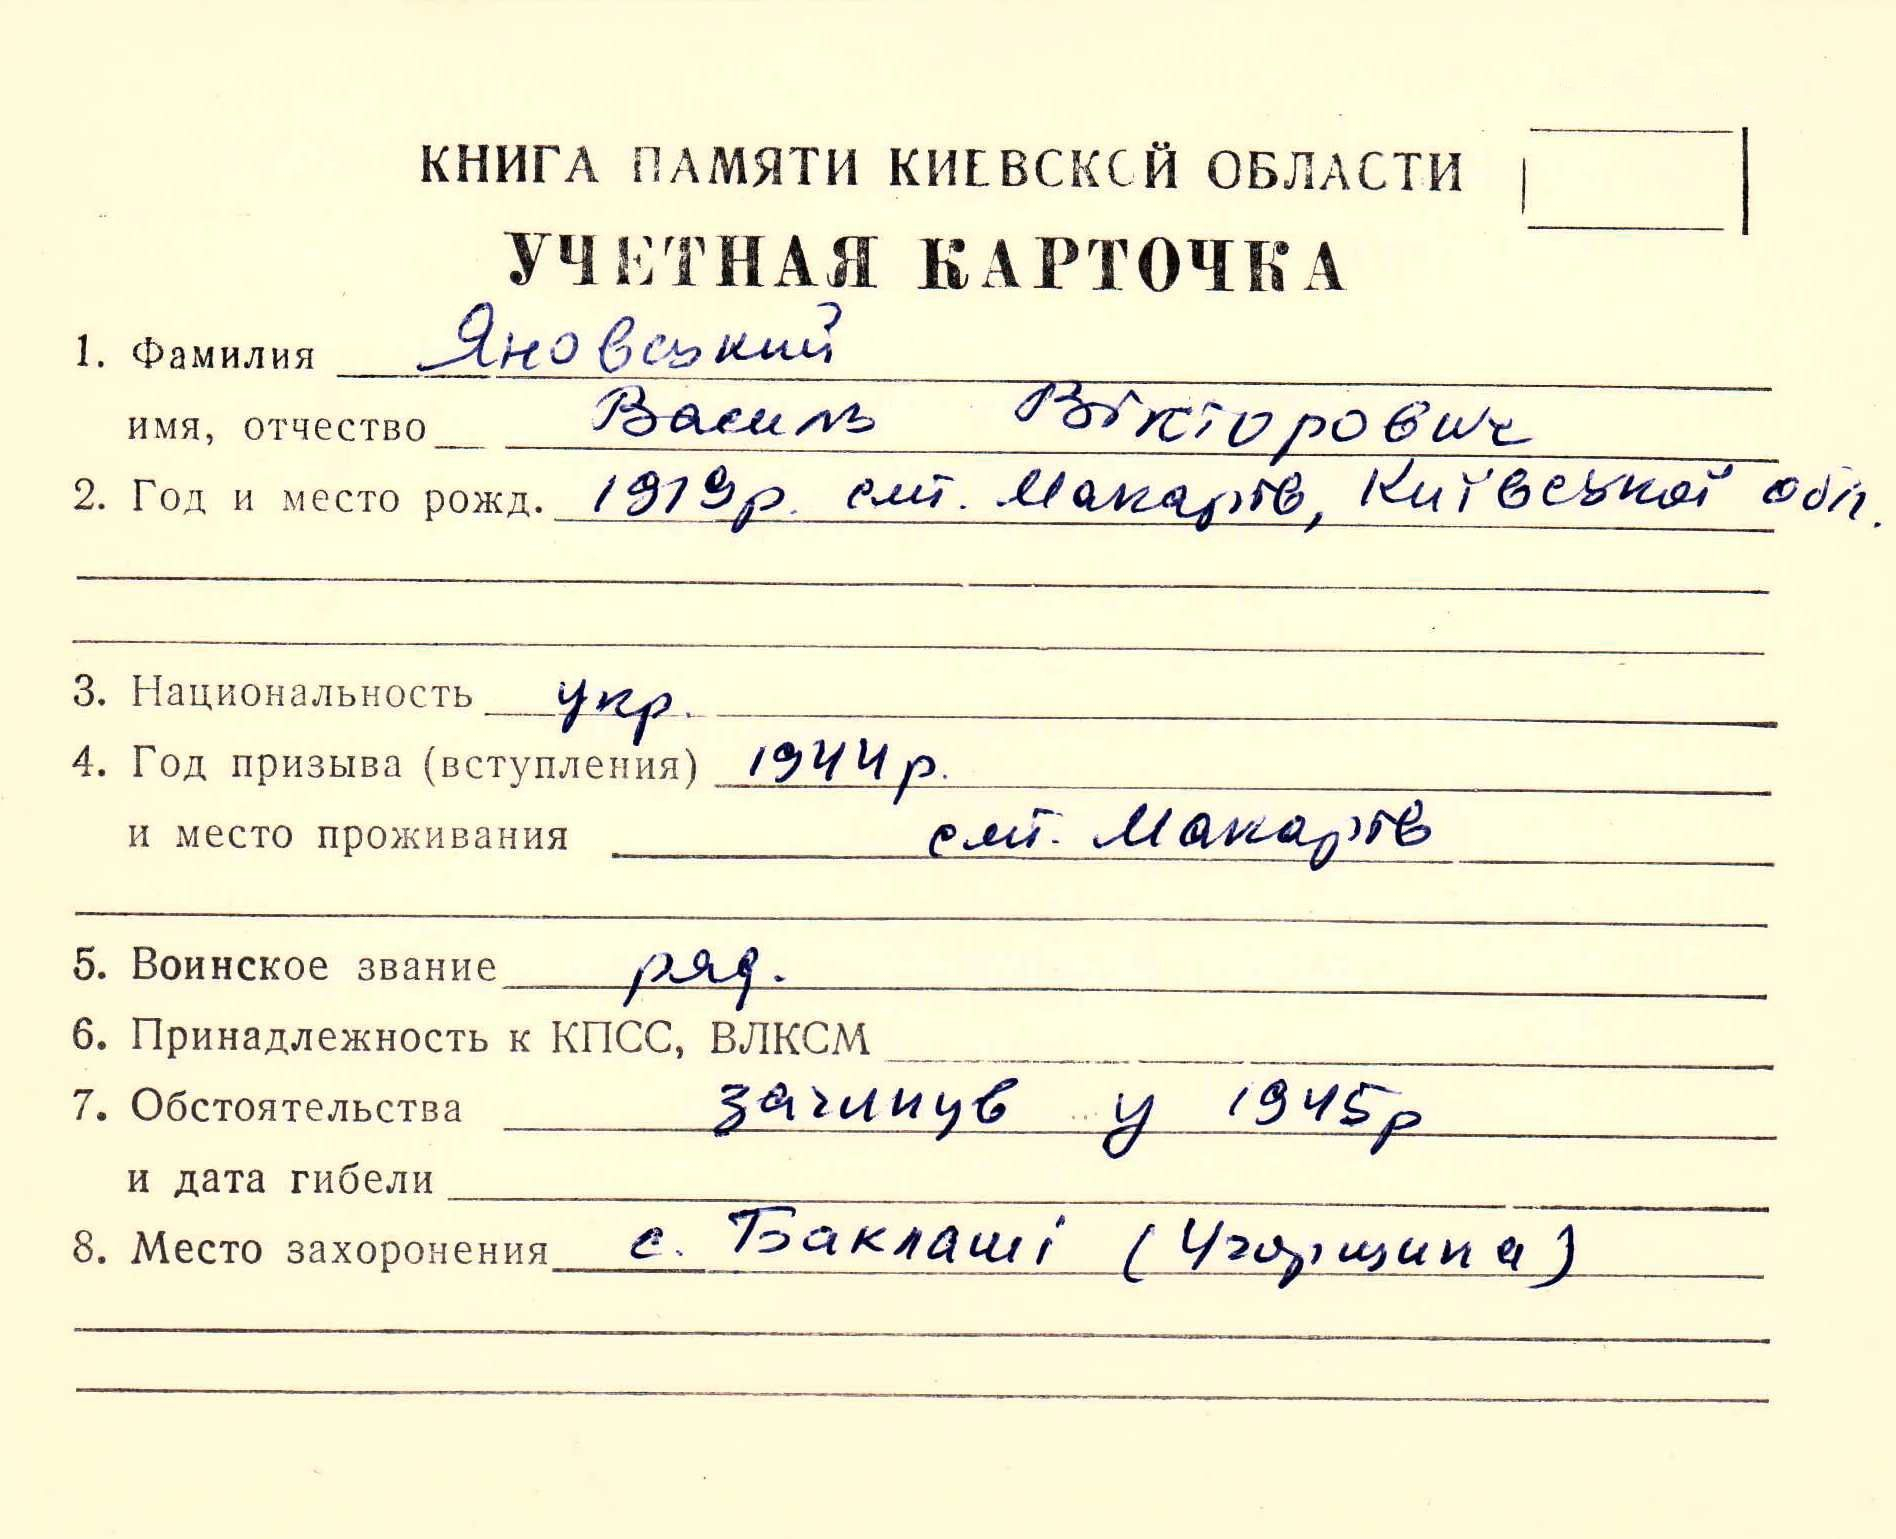 КНИГА ПАМЯТИ КИЕВСКОЙ ОБЛАСТИ
УЧЕТНАЯ КАРТОЧКА
1. Фамилия Яновський
имя, отчество Василь Вікторович
2. Год и место рожд. 1919р. смт. Макарів, Київської обл.
3. Национальность укр.
4. Год призыва (вступления) 1944р.
и место проживания смт. Макарів
5. Воинское звание ряд.
6. Принадлежность к КПСС, ВЛКСМ
7. Обстоятельства загинув у 1945р
и дата гибели
8. Место захоронения с. Баклаші (Угорщина)